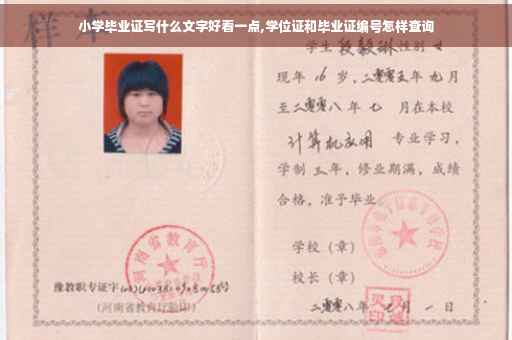 小学毕业证写什么文字好看一点,学位证和毕业证编号怎样查询
样本
学生 段毅琳 性别 女
现年 16 岁，二零零五年 九月
至二零零八年 七 月在本校
计算机应用 专业学习，
学制 三 年，修业期满，成绩
合格，准予毕业。
学校（章）
校长（章）
二零零八年 七 月 一 日
河南省教育厅
豫教职专证字
（河南省教育厅验印）